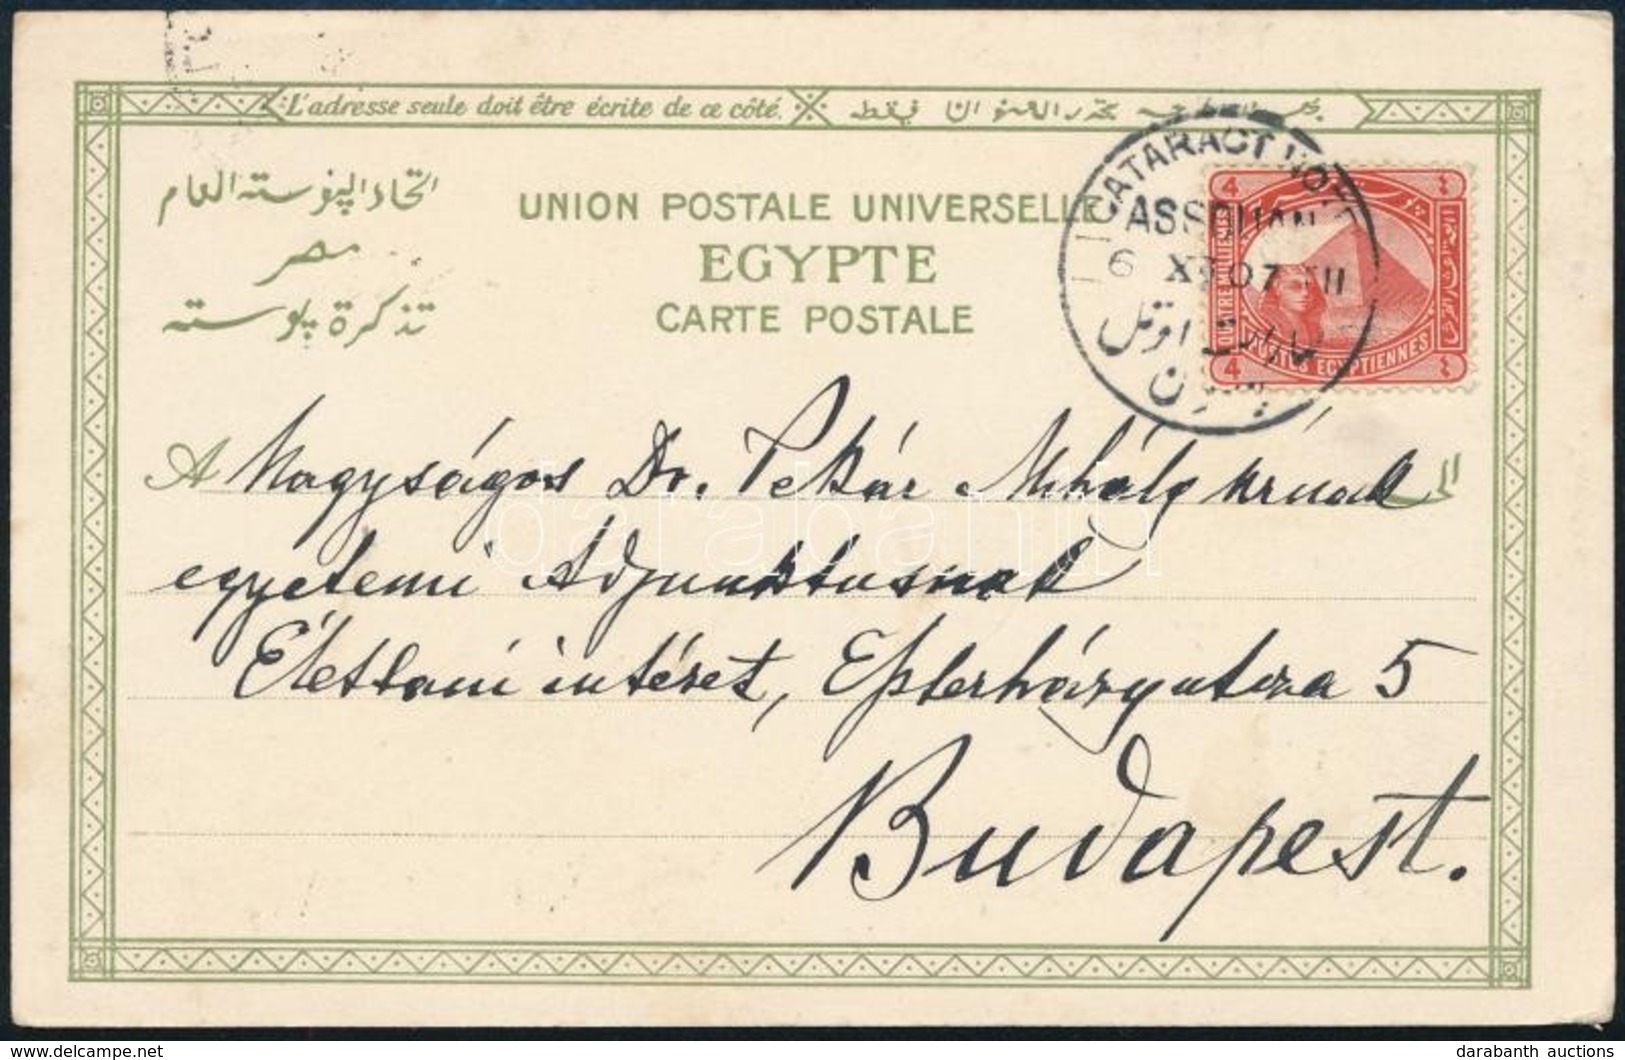 L'adresse seule doit être écrite de ce côté.
اتحاد البوسته العام
مصر
تذكرة بوسته
UNION POSTALE UNIVERSELLE
EGYPTE
CARTE POSTALE
CATARACT HOTEL
ASSOUAN
6 XI 07
اوتل
4 4
QUATRE MILLIEMES
POSTES EGYPTIENNES
4
A Nagyságos Dr. Pekár Mihály úrnak
egyetemi Adjunktusnak
Élettani intézet, Eszterházy utcza 5
Budapest.
darabanth
darabanth auctions
delcampe.net